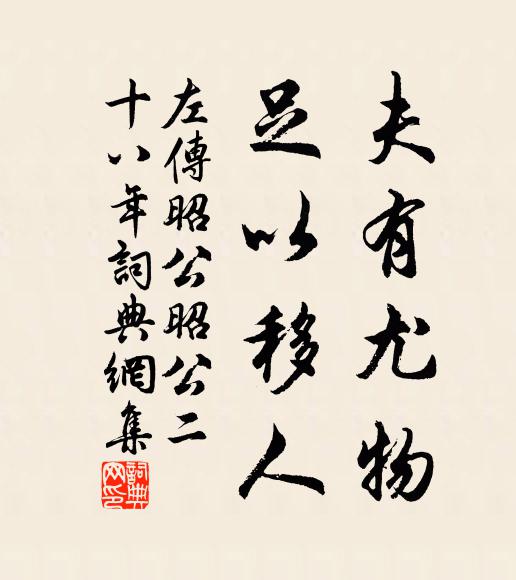 夫有尤物
足以移人
左傳昭公昭公二
十八年詞典網集
詞典网印